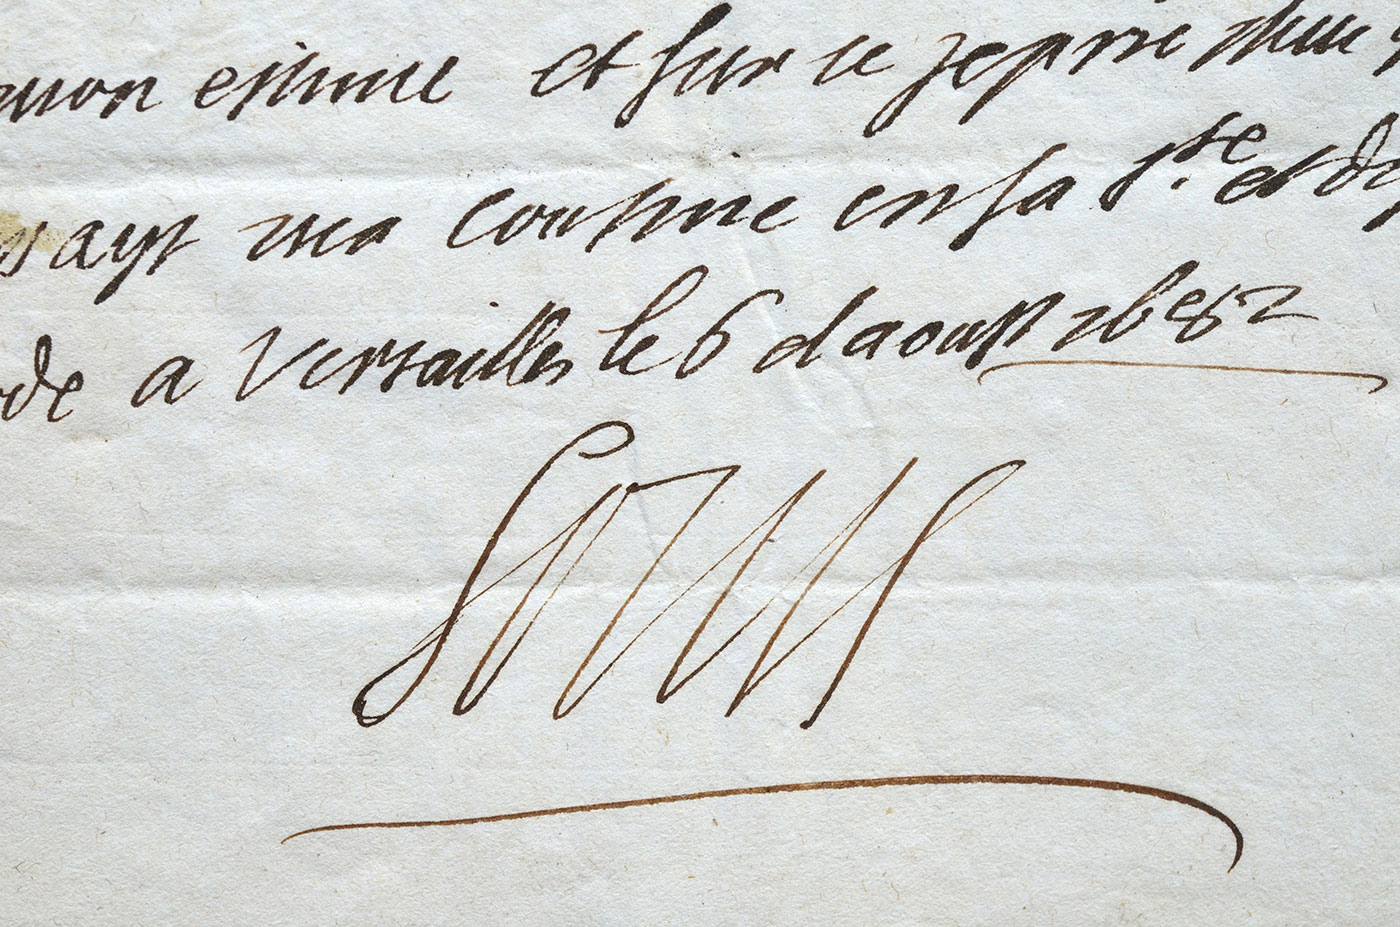 mon estime et sur ce je prie Dieu
ayt ma cousine en sa s.te et di
de a Versailles le 6 d'aoust 1682
Louis